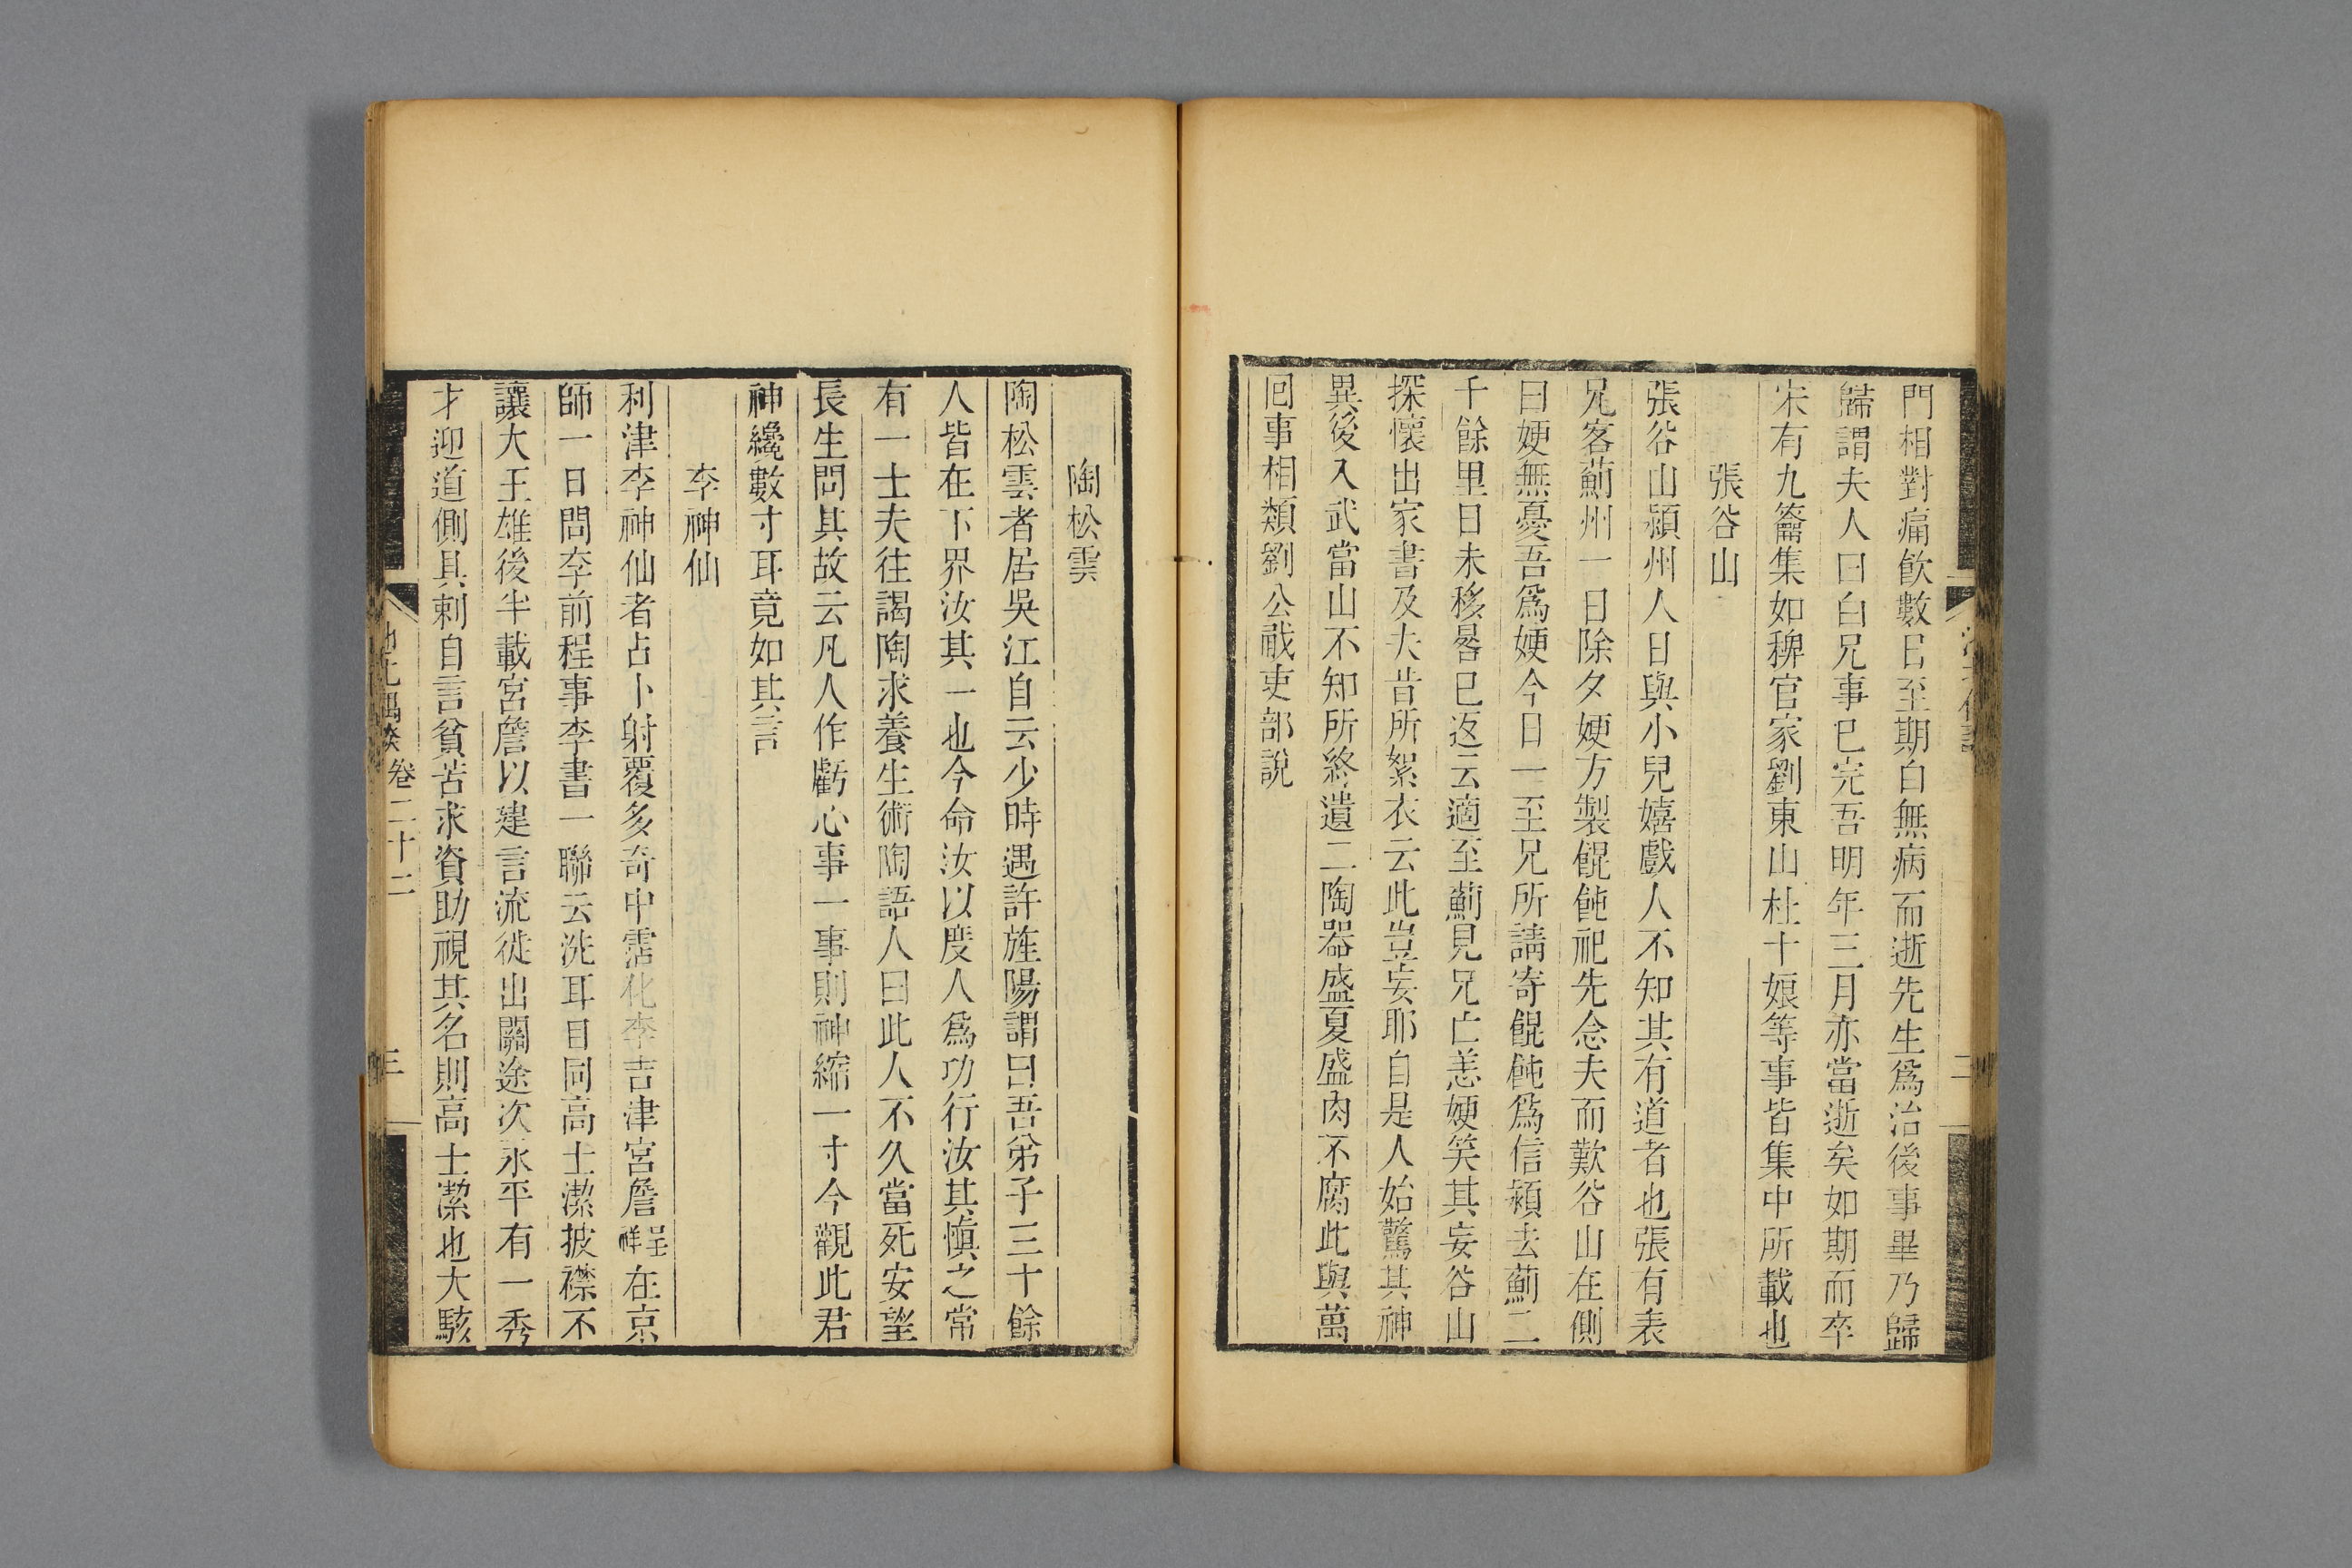 門相對痛飲數日至期白無病而逝先生爲治後事畢乃歸
歸謂夫人曰白兄事已完吾明年三月亦當逝矣如期而卒
宋有九籥集如稗官家劉東山杜十娘等事皆集中所載也
張谷山
張谷山潁州人日與小兒嬉戲人不知其有道者也張有表
兄客薊州一日除夕㛐方製餛飩祀先念夫而歎谷山在側
曰㛐無憂吾爲㛐今日一至兄所請寄餛飩爲信潁去薊二
千餘里日未移晷已返云適至薊見兄亡恙㛐笑其妄谷山
探懷出家書及夫昔所絮衣云此豈妄耶自是人始驚其神
異後入武當山不知所終遺二陶器盛夏盛肉不腐此與萬
囘事相類劉公㦷吏部說
陶松雲
陶松雲者居吳江自云少時遇許旌陽謂曰吾弟子三十餘
人皆在下界汝其一也今命汝以度人爲功行汝其愼之常
有一士夫往謁陶求養生術陶語人曰此人不久當死安望
長生問其故云凡人作虧心事一事則神縮一寸今觀此君
神纔數寸耳竟如其言
李神仙
利津李神仙者占卜射覆多奇中霑化李吉津宮詹呈祥在京
師一日問李前程事李書一聯云洗耳目同高士潔披襟不
讓大王雄後半載宮詹以建言流徙出關途次永平有一秀
才迎道側具刺自言貧苦求資助視其名則高士潔也大駭
池北偶談 卷二十二 三